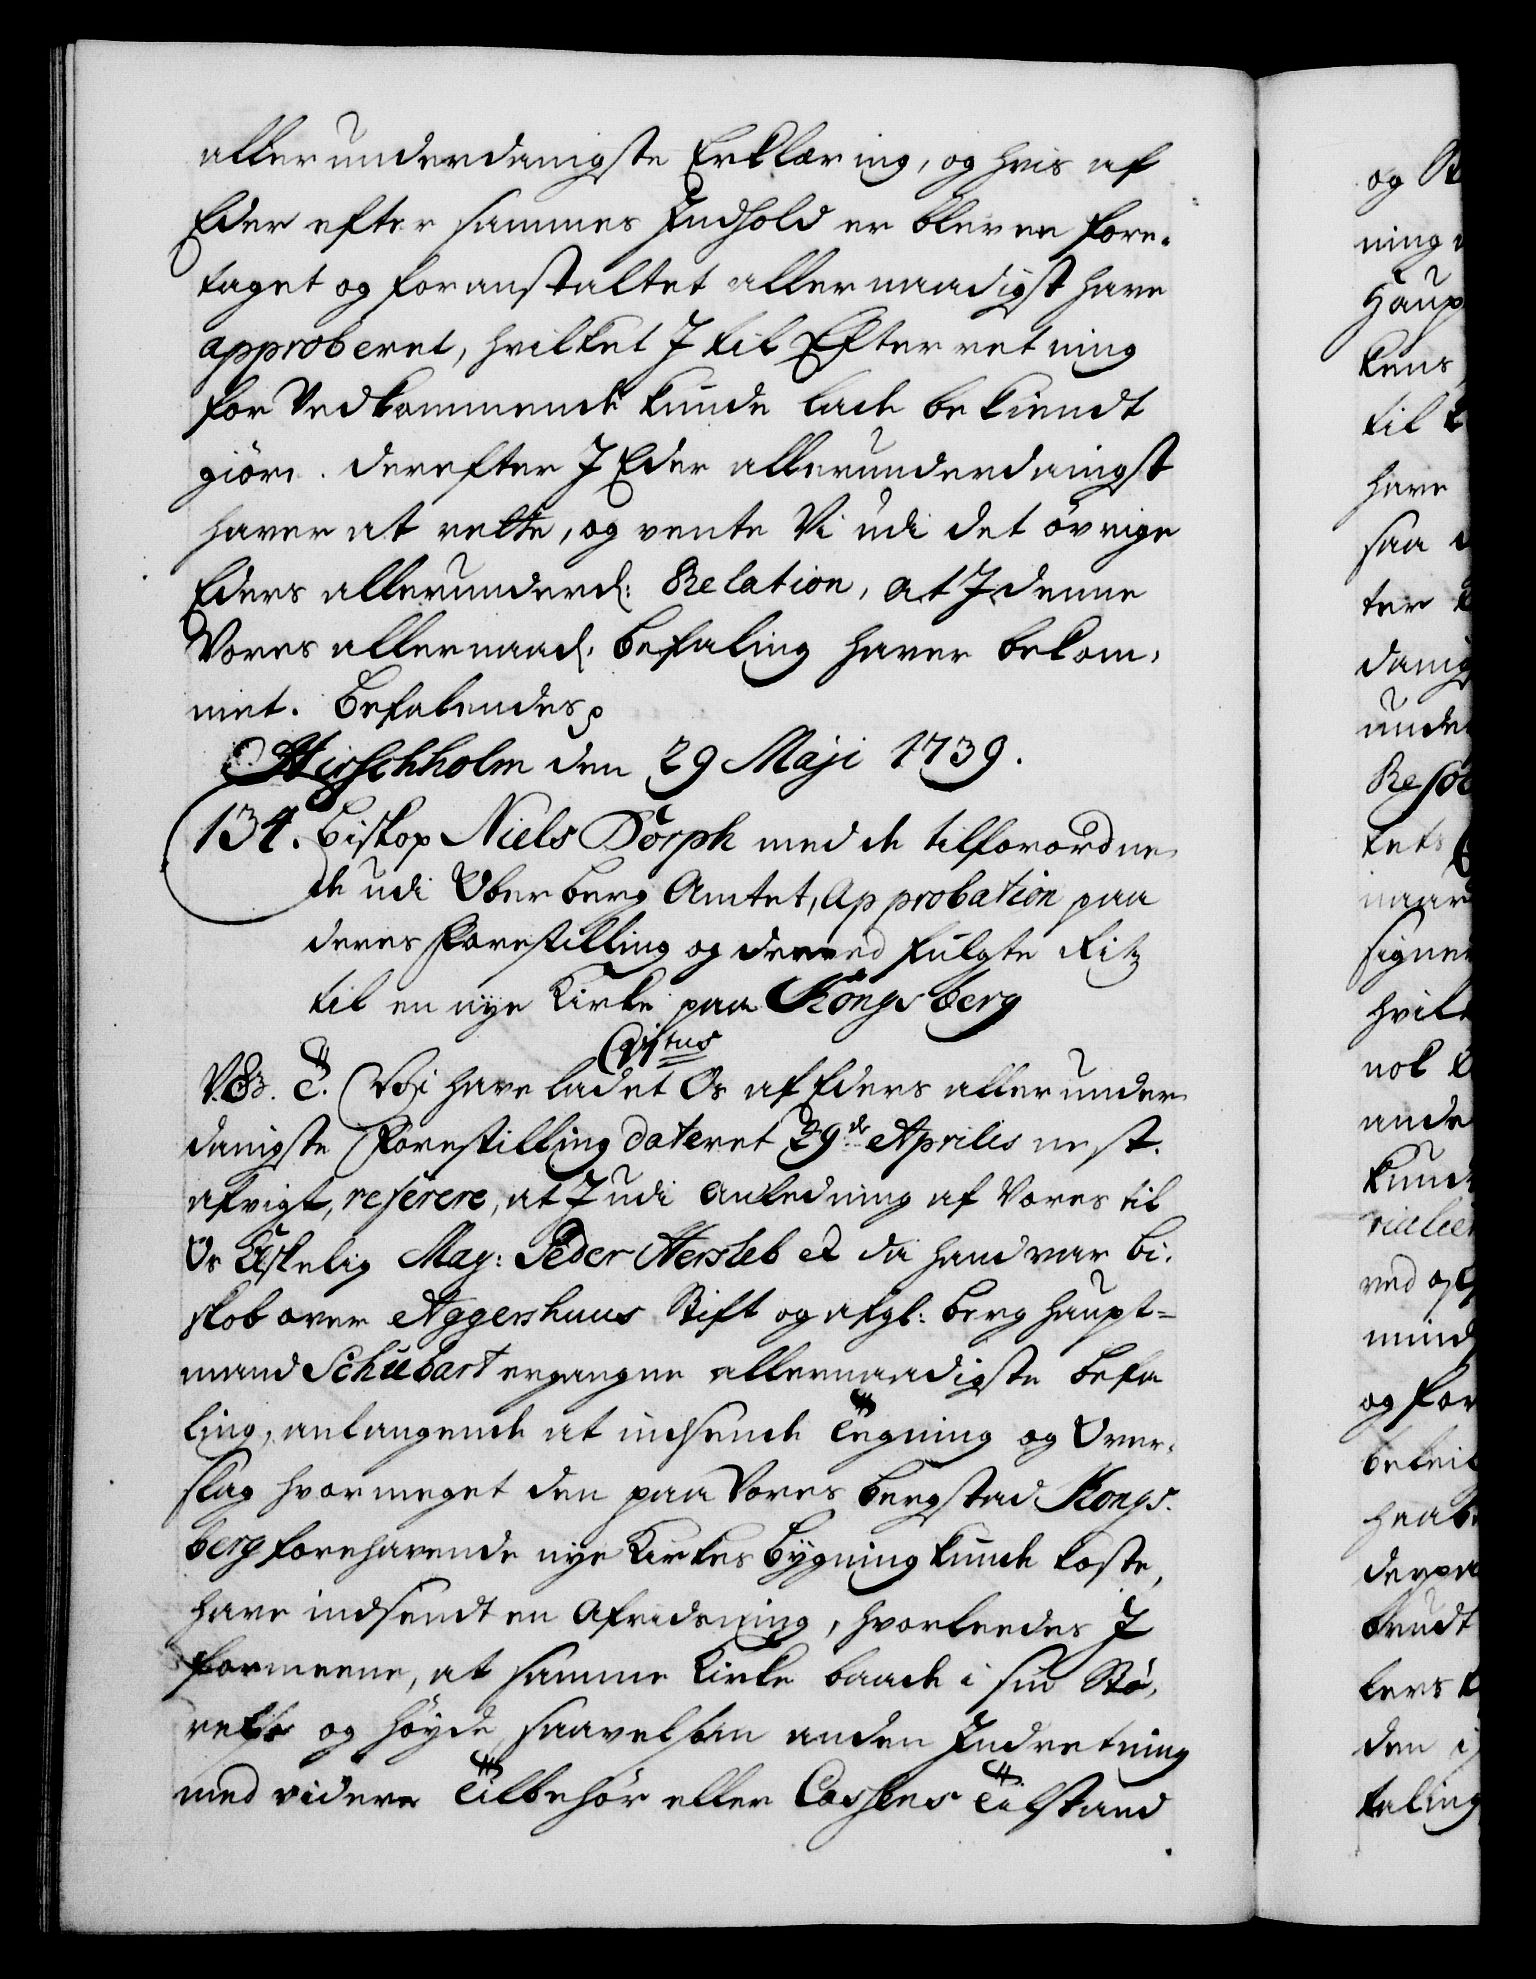 allerunderdanigste Erklæring, og hvis af
Eder efter sammes Indhold er bleven fore-
taget og foranstaltet allernaadigst have
approberet, hvilket I til Efterretning
for Vedkommende kunde lade bekiendt
giöre. derefter I Eder allerunderdanigst
haver at rette, og vente Vi udi det övrige
Eders allerunderd: Relation, at I denne
Vores allernaad. befaling haver bekom-
met. befalendes
Hirschholm den 29 Maji 1739.
134. Biskop Niels Dorph med de tilforordne-
de udi Oberberg Amtet, Approbation paa
deres Forestilling og derved fulgte Ritz
til en nye Kirke paa Kongsberg
C 4tus
V. G. T. Vi have ladet Os af Eders allerunder-
danigste Forestilling dateret 29de Aprilis nest-
afvigt, referere, at I udi Anledning af Vores til
Os Elskelig Mag: Peder Hersleb da hand var Bi-
skob over Aggershuus Stift og afgl: Berghaupt-
mand Schubart ergangne allernaadigste befa
ling, anlangende at indsende Tegning og Over-
slag hvormeget den paa Vores bergstad Kongs-
berg forehavende nye Kirkes bygning kunde koste,
have indsendt en Afridsning, hvorledes I
formeene, at samme Kirke baade i sin Stö-
relse og höyde, saavelsom anden Indretning
med videre Tilbehör eller Cassens Tilstand
og
ning
Haup
kens
til
have
saa
ter
danig
under
Resol
tets
naar
signe
hvil
nok
ande
kund
ved
mind
og for
beleil
haab
derpaa
brudt
lers
den
taling